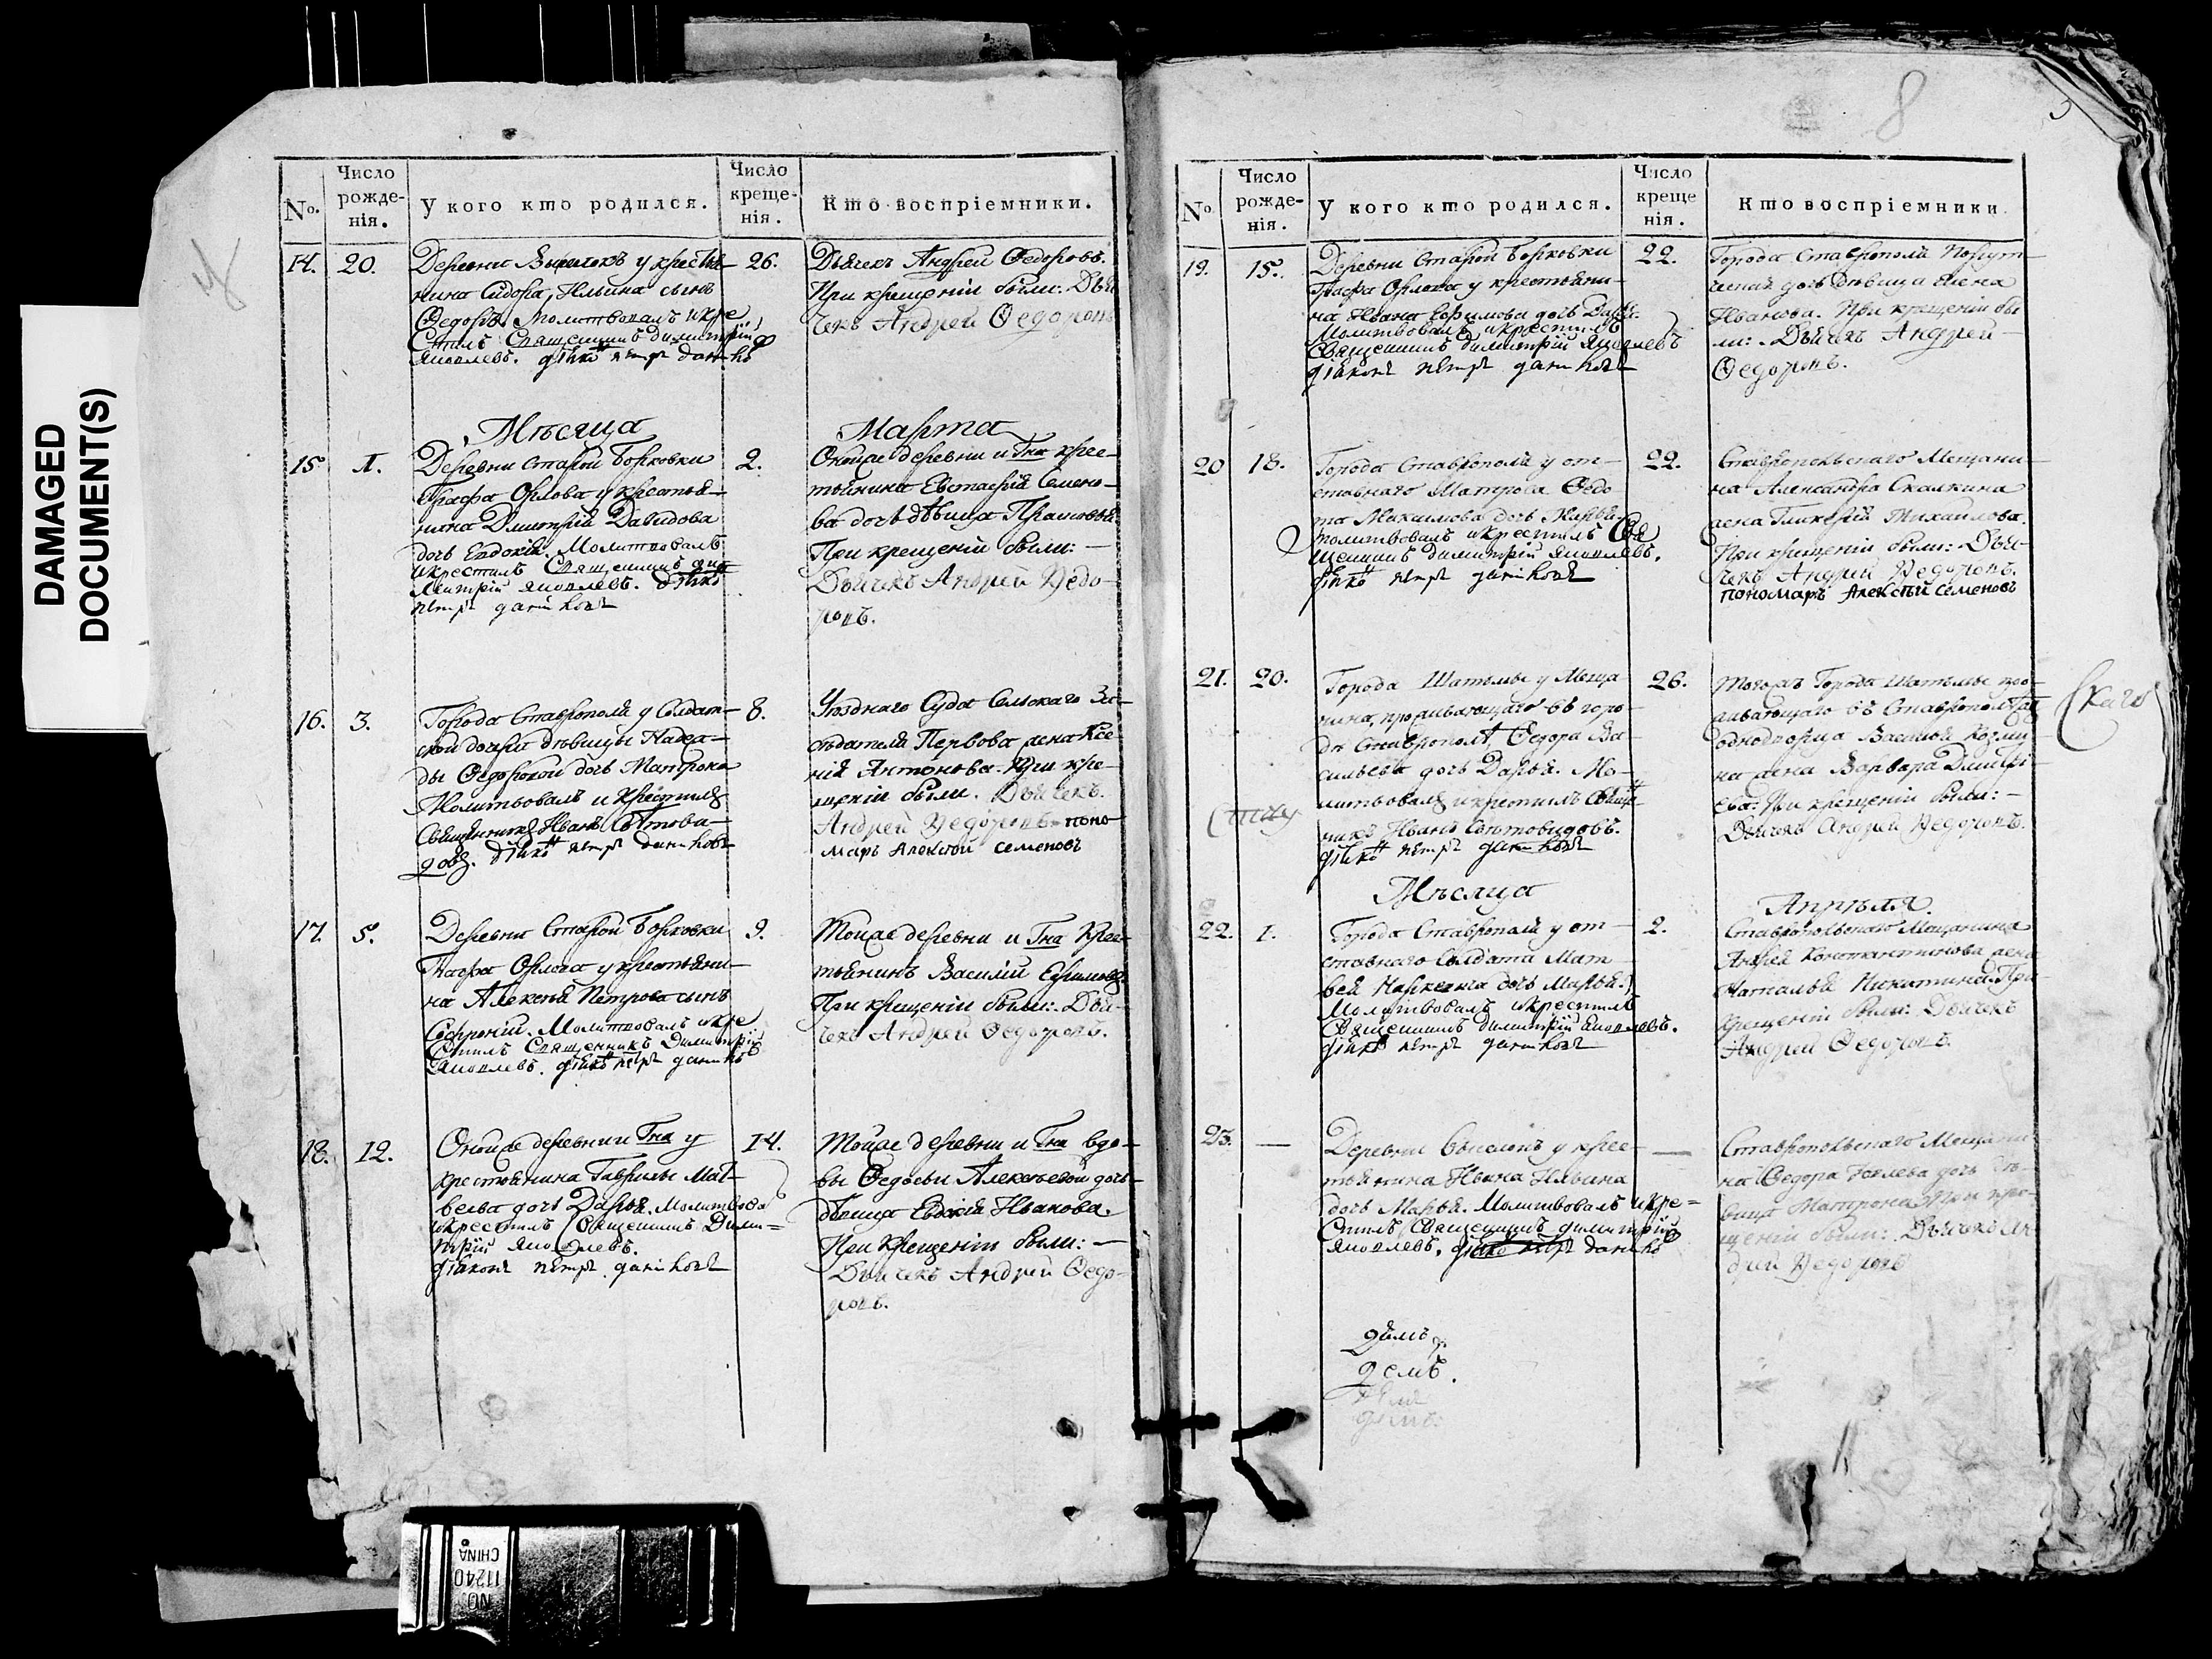 DAMAGED
DOCUMENT(S)
8
No.
Число рожде-нія.
У кого кто родился.
Число креще-нія.
Кто воспріемники.
14. 20.
Деревни Выселокъ у крестья-
нина Сидора Ильина сынъ
Ѳедоръ. Молитвовалъ и кре
стилъ Священникъ Димитрій
Яковлевъ. діаконъ петръ даниловъ
26.
Дьячекъ Андрей Ѳедоровъ.
При крещеніи были: Дья
чекъ Андрей Ѳедоровъ
Мѣсяца Марта
15 1.
Деревни Старой Борковки
Графа Орлова у крестья-
нина Дмитрія Давидова
дочь Евдокія. Молитвовалъ
и крестилъ Священникъ Ди
митрій Яковлевъ. діаконъ
петръ даниловъ
2.
Оной же деревни и Гна крес-
тьянина Евстафія Семено-
ва дочь дѣвица Прасковья
При крещеніи были: —
Дьячекъ Андрей Ѳедо-
ровъ.
16. 3.
Города Ставрополя у Солдат-
ской дочери дѣвицы Надеж-
ды Ѳедоровой дочь Матрона
Молитвовалъ и крестилъ
Священникъ Иванъ Свѣтови-
довъ. діаконъ петръ даниловъ
8.
Уѣзднаго Суда Сельскаго За-
сѣдателя Первова жена Ксе
нія Антонова. При кре-
щеніи были. Дьячекъ.
Андрей Ѳедоровъ поно
марь Алексѣй Семеновъ
17. 5.
Деревни Старой Борковки
Графа Орлова у крестьяни-
на Алексѣя Петрова сынъ
Софроній. Молитвовалъ и кре
стилъ Священникъ Димитрій
Яковлевъ. діаконъ петръ даниловъ
9.
Тойже деревни и Гна Крес-
тьянинъ Василій Ефимовъ.
При крещеніи были: Дья-
чекъ Андрей Ѳедоровъ.
18. 12.
Оной же деревни и Гна у
крестьянина Гаврилы Мат-
вѣева дочь Дарья. Молитвова
и крестилъ Священникъ Дими-
трій Яковлевъ.
діаконъ петръ даниловъ
14.
Тойже деревни и Гна вдо-
вы Ѳедосьи Алексѣевой дочь
дѣвица Иванова.
При Крещеніи были: —
Дьячекъ Андрей Ѳедо-
ровъ.
No.
Число рожде-нія.
У кого кто родился.
Число креще нія.
Кто воспріемники.
19. 15.
Деревни Старой Борковки
Графа Орлова у крестьяни-
на Ивана Ефимова дочь Дарья.
Молитвовалъ и крестилъ
Священникъ Димитрій Яковлевъ
діаконъ петръ даниловъ
22.
Города Ставрополя Порут-
чика дочь дѣвица Елена
Иванова. При крещеніи бы
ли: Дьячекъ Андрей
Ѳедоровъ.
20 18.
Города Ставрополя у от-
ставнаго Матроса Ѳедо
та Максимова дочь Марья.
Молитвовалъ и крестилъ Свя
щенникъ Димитрій Яковлевъ.
діаконъ петръ даниловъ
22.
Ставропольскаго Мещани
на Александра Скалкина
жена Гликерія Михайлова.
При крещеніи были: Дья-
чекъ Андрей Ѳедоровъ.
пономарь Алексѣй Семеновъ
21. 20.
Города Шатьмы у Меща
нина, проживающаго въ горо-
дѣ Ставрополѣ, Ѳедора Ва
сильева дочь Дарья. Мо-
литвовалъ и крестилъ Священ
никъ Иванъ Свѣтовидовъ.
діаконъ петръ даниловъ
26.
Тогожъ Города Шатьмы про-
живающаго въ Ставрополѣ
однодворца Василья Козми
на жена Варвара Дмитрі
ева: При крещеніи были: —
Дьячекъ Андрей Ѳедоровъ.
Мѣсяца Апрѣля.
22. 1.
Города Ставрополя у от-
ставнаго Солдата Мат
вея дочь Марья.
Молитвовалъ и крестилъ
Священникъ Димитрій Яковлевъ.
діаконъ петръ даниловъ
2.
Ставропольскаго Мещанина
Андрея Константинова жена
Наталья Никитина. При
крещеніи были: Дьячекъ
Андрей Ѳедоровъ.
23. —
Деревни Выселокъ у крес-
тьянина Ивана Ильина
дочь Марья. Молитвовалъ и кре-
стилъ Священникъ Димитрій
Яковлевъ. діаконъ петръ даниловъ
—
Ставропольскаго Мещани
на Ѳедора дочь дѣ-
вица Матрона. При кре-
щеніи были: Дьячекъ Ан
дрей Ѳедоровъ
NO. 11240
CHINA